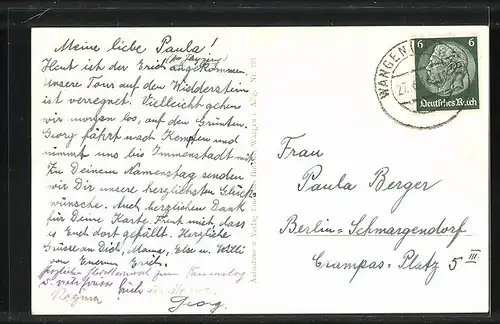 Meine liebe Paula!
Heut ist der Erich angekommen.
Unsere Tour auf den Widderstein
ist verregnet. Vielleicht gehen
wir morgen los, auf den Grünten.
Georg fährt nach Kempten und
nimmt uns bis Immenstadt mit.
Zu Deinem Namenstag senden
wir Dir unsere herzlichsten Glück-
wünsche. Auch herzlichen Dank
für Deine Karte. Freut mich, dass
es Euch dort gefällt. Herzliche
Grüsse an Dich, Mama, Else u. Willi
von Eurem Erich.
zum Namenstag
Regina
Georg.
Aufnahme u. Verlag Wangen i. Allg.
WANGEN
6 6
Deutsches Reich
Frau
Paula Berger
Berlin-Schmargendorf
Crampas-Platz 5 III